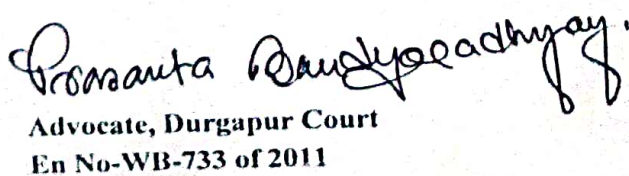 Prasanta Bandyopadhyay.
Advocate, Durgapur Court
En No-WB-733 of 2011